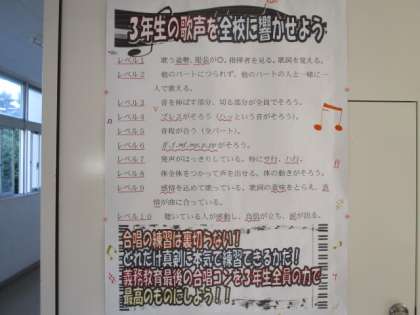 3年生の歌声を全校に響かせよう
レベル1 歌う姿勢、隊形が〇。指揮者を見る。歌詞を覚える。
レベル2 他のパートにつられず、他のパートの人と一緒に一
人で歌える。
レベル3 音を伸ばす部分、切る部分が全員でそろう。
レベル4 ブレスがそろう（ハッという音がそろう）。
レベル5 音程が合う（全パート）。
レベル6 ff,f,mf,mp,p,ppがそろう。
レベル7 発声がはっきりしている。特にサ行、ハ行。
レベル8 体全体をつかって声を出せる。体の動きがそろう。
レベル9 感情を込めて歌っている。歌詞の意味をとらえ、表
情が曲に合っている。
レベル10 聴いている人が感動し、鳥肌が立ち、涙が出る。
合唱の練習は裏切らない！
どれだけ真剣に本気で練習できるかだ！
義務教育最後の合唱コンを3年生全員の力で
最高のものにしよう！！